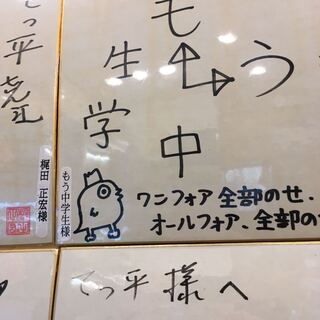 てっ平
梶田 正宏様
もう中学生
もう中学生様
ワンフォア 全部のせ.
オールフォア、全部の
てっ平 様 へ